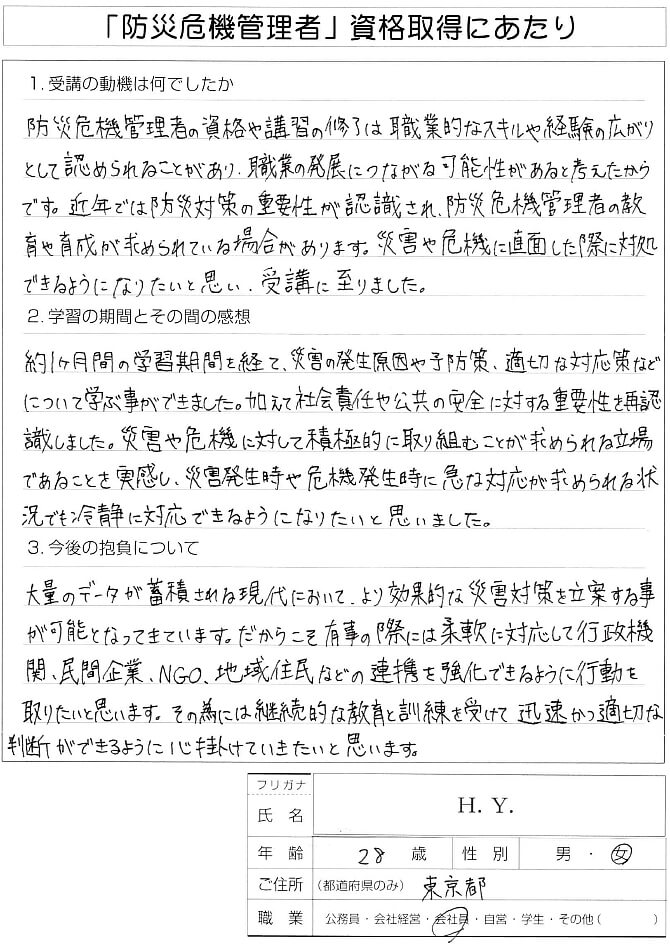 「防災危機管理者」資格取得にあたり
1. 受講の動機は何でしたか
防災危機管理者の資格や講習の修了は職業的なスキルや経験の広がり
として認められることがあり、職業の発展につながる可能性があると考えたから
です。近年では防災対策の重要性が認識され、防災危機管理者の教
育や育成が求められている場合があります。災害や危機に直面した際に対処
できるようになりたいと思い、受講に至りました。
2. 学習の期間とその間の感想
約1ヶ月間の学習期間を経て、災害の発生原因や予防策、適切な対応策など
について学ぶ事ができました。加えて社会責任や公共の安全に対する重要性を再認
識しました。災害や危機に対して積極的に取り組むことが求められる立場
であることを実感し、災害発生時や危機発生時に急な対応が求められる状
況でも冷静に対応できるようになりたいと思いました。
3. 今後の抱負について
大量のデータが蓄積される現代において、より効果的な災害対策を立案する事
が可能となってきています。だからこそ有事の際には柔軟に対応して行政機
関、民間企業、NGO、地域住民などの連携を強化できるように行動を
取りたいと思います。その為には継続的な教育と訓練を受けて迅速かつ適切な
判断ができるように心掛けていきたいと思います。
フリガナ
氏名 H. Y.
年齢 28 歳 性別 男・女
ご住所 (都道府県のみ) 東京都
職業 公務員・会社経営・会社員・自営・学生・その他( )